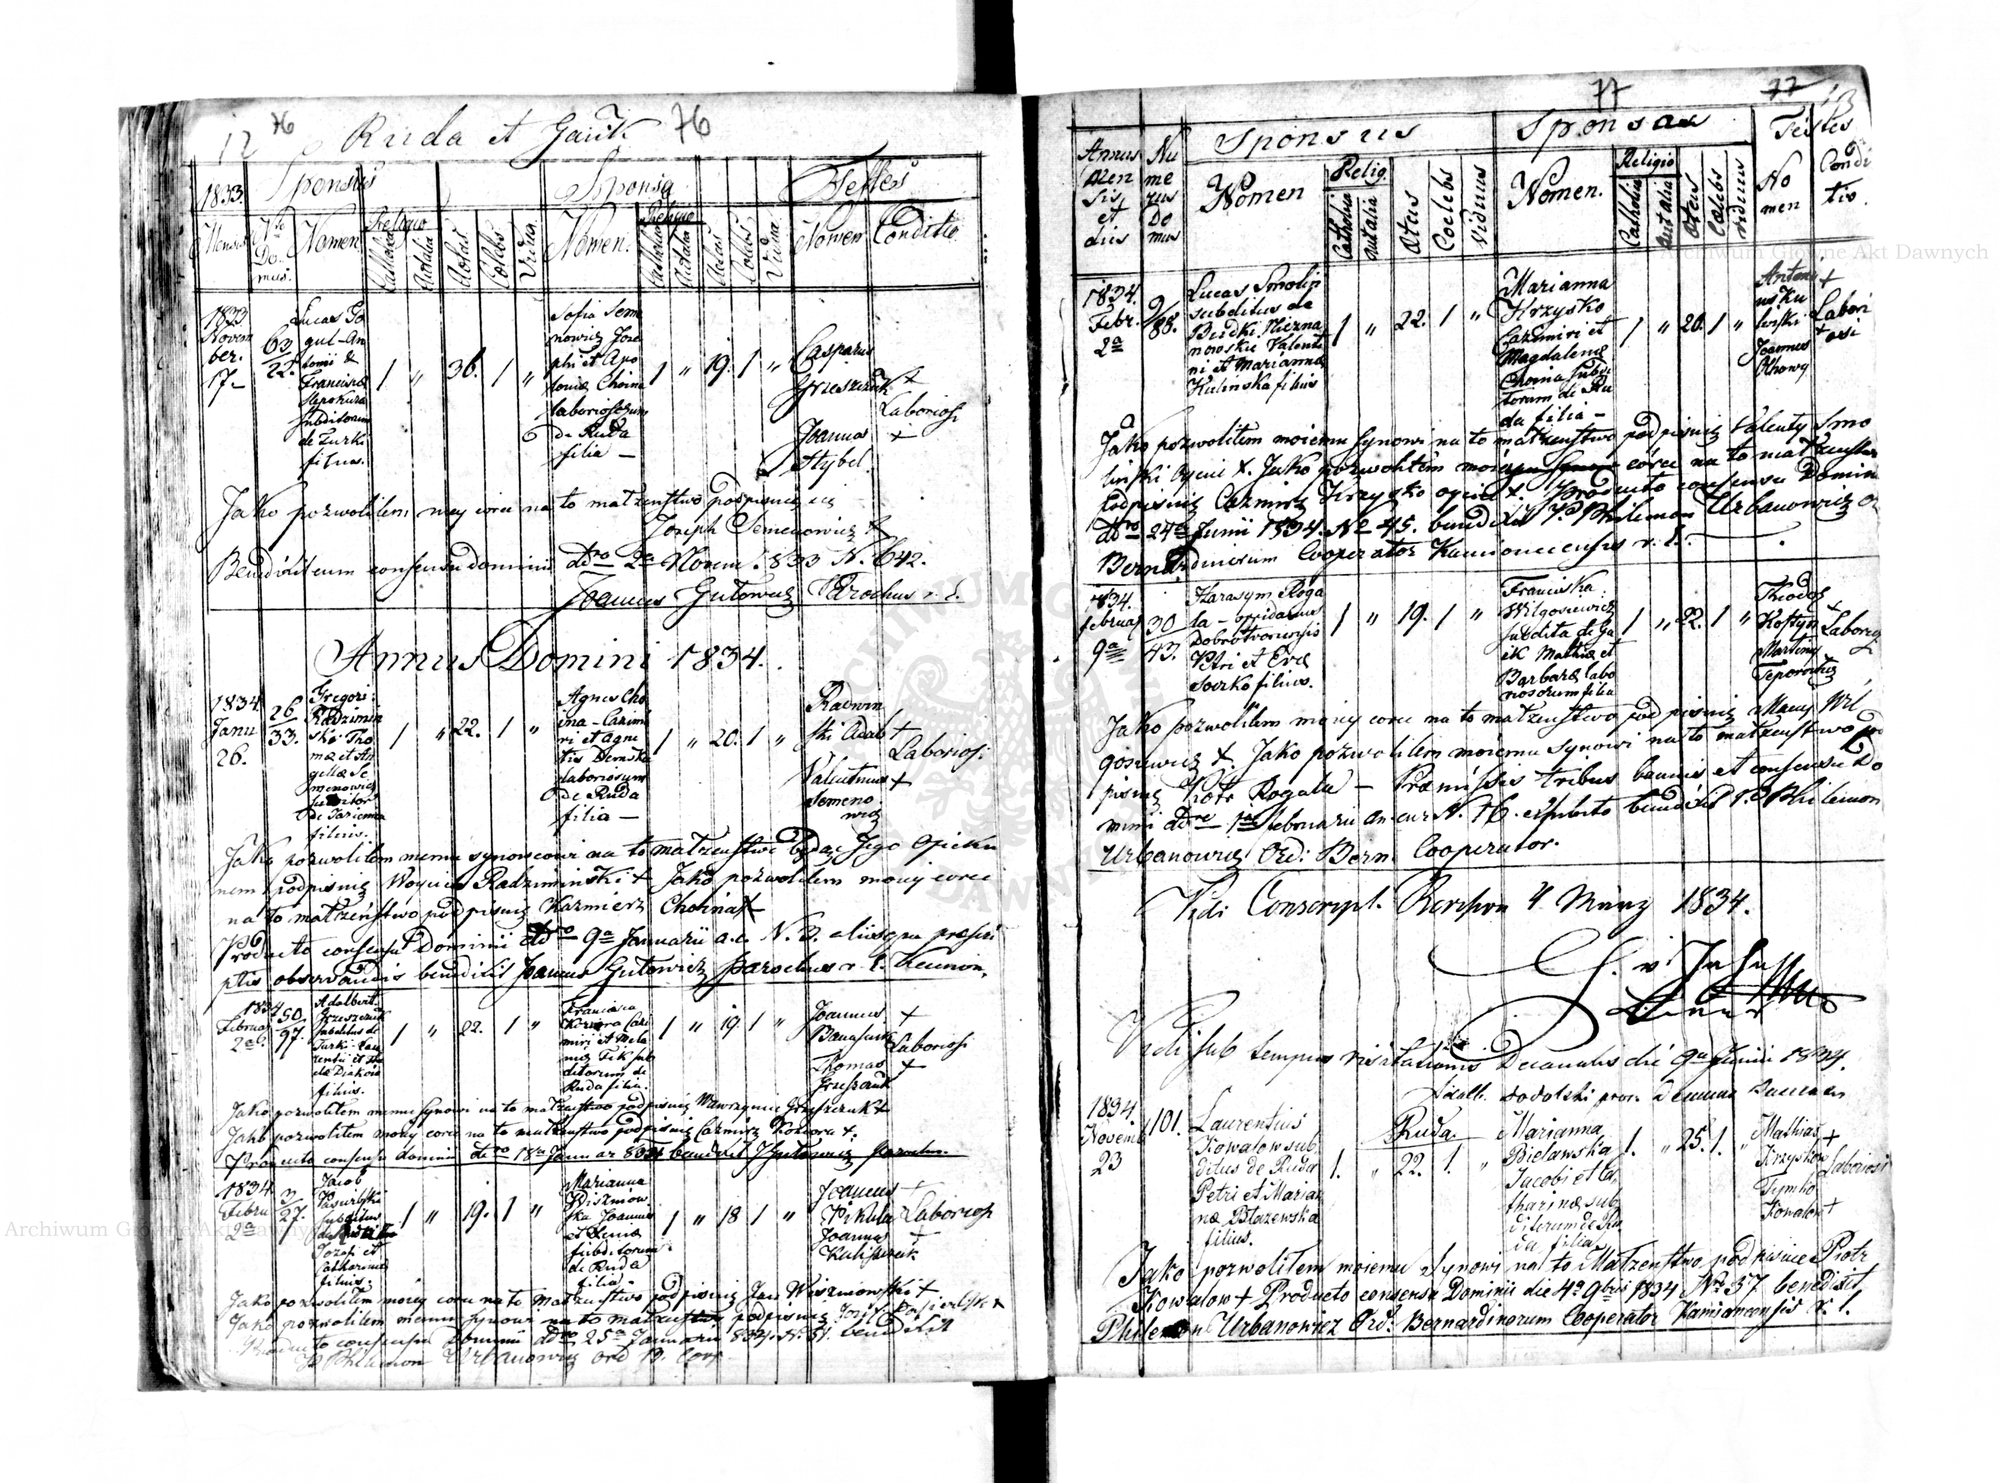 12 76 Ruda et Gaik 76
1833. Sponsus Sponsa Testes
Mensis
Nro Domus
Nomen
Religio
Catholica
Autalia
Aetas
Coelebs
Viduus
Nomen
Religio
Catholica
Autalia
Aetas
Coelebs
Vidua
Nomen
Conditio
1833
Novem
ber.
17-
63
22.
Lucas Go
gul-An
tonii &
Franciscæ
Subditorum
de Turki
filius.
1 " 36. 1 "
Sofia Sem
nowicz Jose
phi et Apo
loniæ Choina
laboriosorum
de Ruda
filia -
1 " 19. 1 "
Casparus
Grzeszczuk +
Laboriosi
Joannes +
Hybel.
Jako pozwolilem mey corce na to małzenstwo podpisuię się
Joseph Semenowicz +
Benedixit cum consensu dominii ddro 2a Novem. 833 N. 642.
Joannes Gutowicz Parochus r. l.
Annus Domini 1834.
1834
Janu
26.
26
33.
Gregori:
Radzimin
ski Tho
mæ et An
gellæ Se
menowicz
filius.
1 " 22. 1 "
Agnes Cho
ina - Casimi
ri et Agne
tis Demska
laboriosorum
de Ruda
filia -
1 " 20. 1 "
Radwin
ski Adalb +
Laboriosi.
Valentinus +
Semeno
wicz
Jako pozwolilem memu synowcowi na to małzenstwo będąc Jego Opieku
nem podpisuię Woyciech Radziminski + Jako pozwolilem moiey corce
na to małzeństwo podpisuię Kazmierz Choina +
Producto consensu Dominii ddro 9a Januarii a.c. N. 3. aliisque præscri
ptis observandis benedixit Joannes Gutowicz parochus r. l.
1834
Februar
2a
50.
97.
Adalbert.
Grzeszczuk
subditus de
Turki Lau
rentii et
filius.
1 " 22. 1 "
Francisca
Koziora Casi
miri et Mela
niæ Fik sub
ditorum de
Ruda filia.
1 " 19. 1 "
Joannes +
Laboriosi
Thomas +
Grzeszczuk
Jako pozwolilem memu synowi na to małzenstwo podpisuię Wawrzyniec Grzeszczuk +
Jako pozwolilem moiey corce na to małzenstwo podpisuię Cazmirz Koziora +.
Producto consensu dominii ddro 18a Januar 834 benedixit J Gutowicz Parochus.
1834
Febru
2a
3
27.
Jacob
subditus
Jozefi et
Catharinæ
filius.
1 " 19. 1 "
Marianna
Wiszniow
ska Joannis
et Xeniæ
subditorum
de Ruda
filia.
1 " 18 1 "
Joannes +
Pikula Laboriosi
Joannes +
Jako pozwolilem moiey corce na to małzenstwo podpisuię Jan Wiszniowski +
Jako pozwolilem memu synowi na to małzenstwo podpisuię
Producto consensu Dominii ddro 25a Januarii 834. N. 81. benedixit
P Philemon Urbanowicz ord B. Coop.
77 77 13
Annus
Men
sis
et
dies
Nu
me
rus
Do
mus
Sponsus
Nomen
Relig.
Catholica
Autalia
Ætas
Coelebs
Viduus
Sponsa
Nomen.
Religio
Catholica
Autalia
Ætas
Coelebs
Viduus
Testes
No
men
Condi
tio.
1834.
Febr.
2a
9/88.
Lucas Smolin
subditus de
Budki Niezna
nowskie Valenti
ni et Mariannæ
Kulinska filius
1 " 22. 1 "
Marianna
Krzysko
Cazimiri et
Magdalenæ
Choina subdi
torum de Ru
da filia -
1 " 20. 1 "
Antoni +
Labori
osi
+
Joannes
Jako pozwolilem moiemu synowi na to małzenstwo podpisuię Walenty Smo
linski Oyciec +. Jako pozwolilem moiey corce na to małzenstwo
podpisuię Cazmirz Krzysko oyciec +. Producto consensu Domin
ddro 24a Junii 1834. No 45. benedixit P. Philemon Urbanowicz Or
Bernardinorum Cooperator Kamionecensis r. l.
1834.
februar
9a
30
43.
Harasym Roga
la - oppidanus
Dobrotvorensis
Petri et Evæ
Soczko filius.
1 " 19. 1 "
Franciska
Wilgosiewicz
subdita de Ga
ik Mathiæ et
Barbaræ labo
riosorum filia
1 " 22. 1 "
Theodos
Kostyn +
Laborios
Martinus
Teporowicz
Jako pozwolilem moiey corce na to małzenstwo podpisuię Maciey Wil
gosiewicz +. Jako pozwolilem moiemu synowi na to małzenstwo pod
pisuię Piotr Rogala - Præmissis tribus bannis et consensu Do
minii ddro 1a februarii an. cur N. 76. exhibito benedixit P. Philemon
Urbanowicz Ord: Bern. Cooperator.
Vidi Conscript. Revision 4 März 1834.
Vidi sub tempus visitationis Decanalis die 9a Junii 1834.
1834
Novemb
23
101.
Laurentius
Kowalow sub
ditus de Ruda
Petri et Marian
næ Błazewska
filius.
Ruda.
1. " 22. 1. "
Marianna
Bielawska
Jacobi et Ca
tharinæ sub
ditorum de Ru
da filia
1. " 25. 1. "
Mathias +
Krzyskow
Laboriosi
Tymko
Kowalow +
Jako pozwolilem moiemu Synowi na to Małzenstwo podpisuię Piotr
Kowalow + Producto consensu Dominii die 4a 9bris 1834 Nro 37 benedixit
Philemon Urbanowicz Ord. Bernardinorum Cooperator Kamionecensis r. l.
Archiwum Główne Akt Dawnych
Archiwum Główne Akt Dawnych